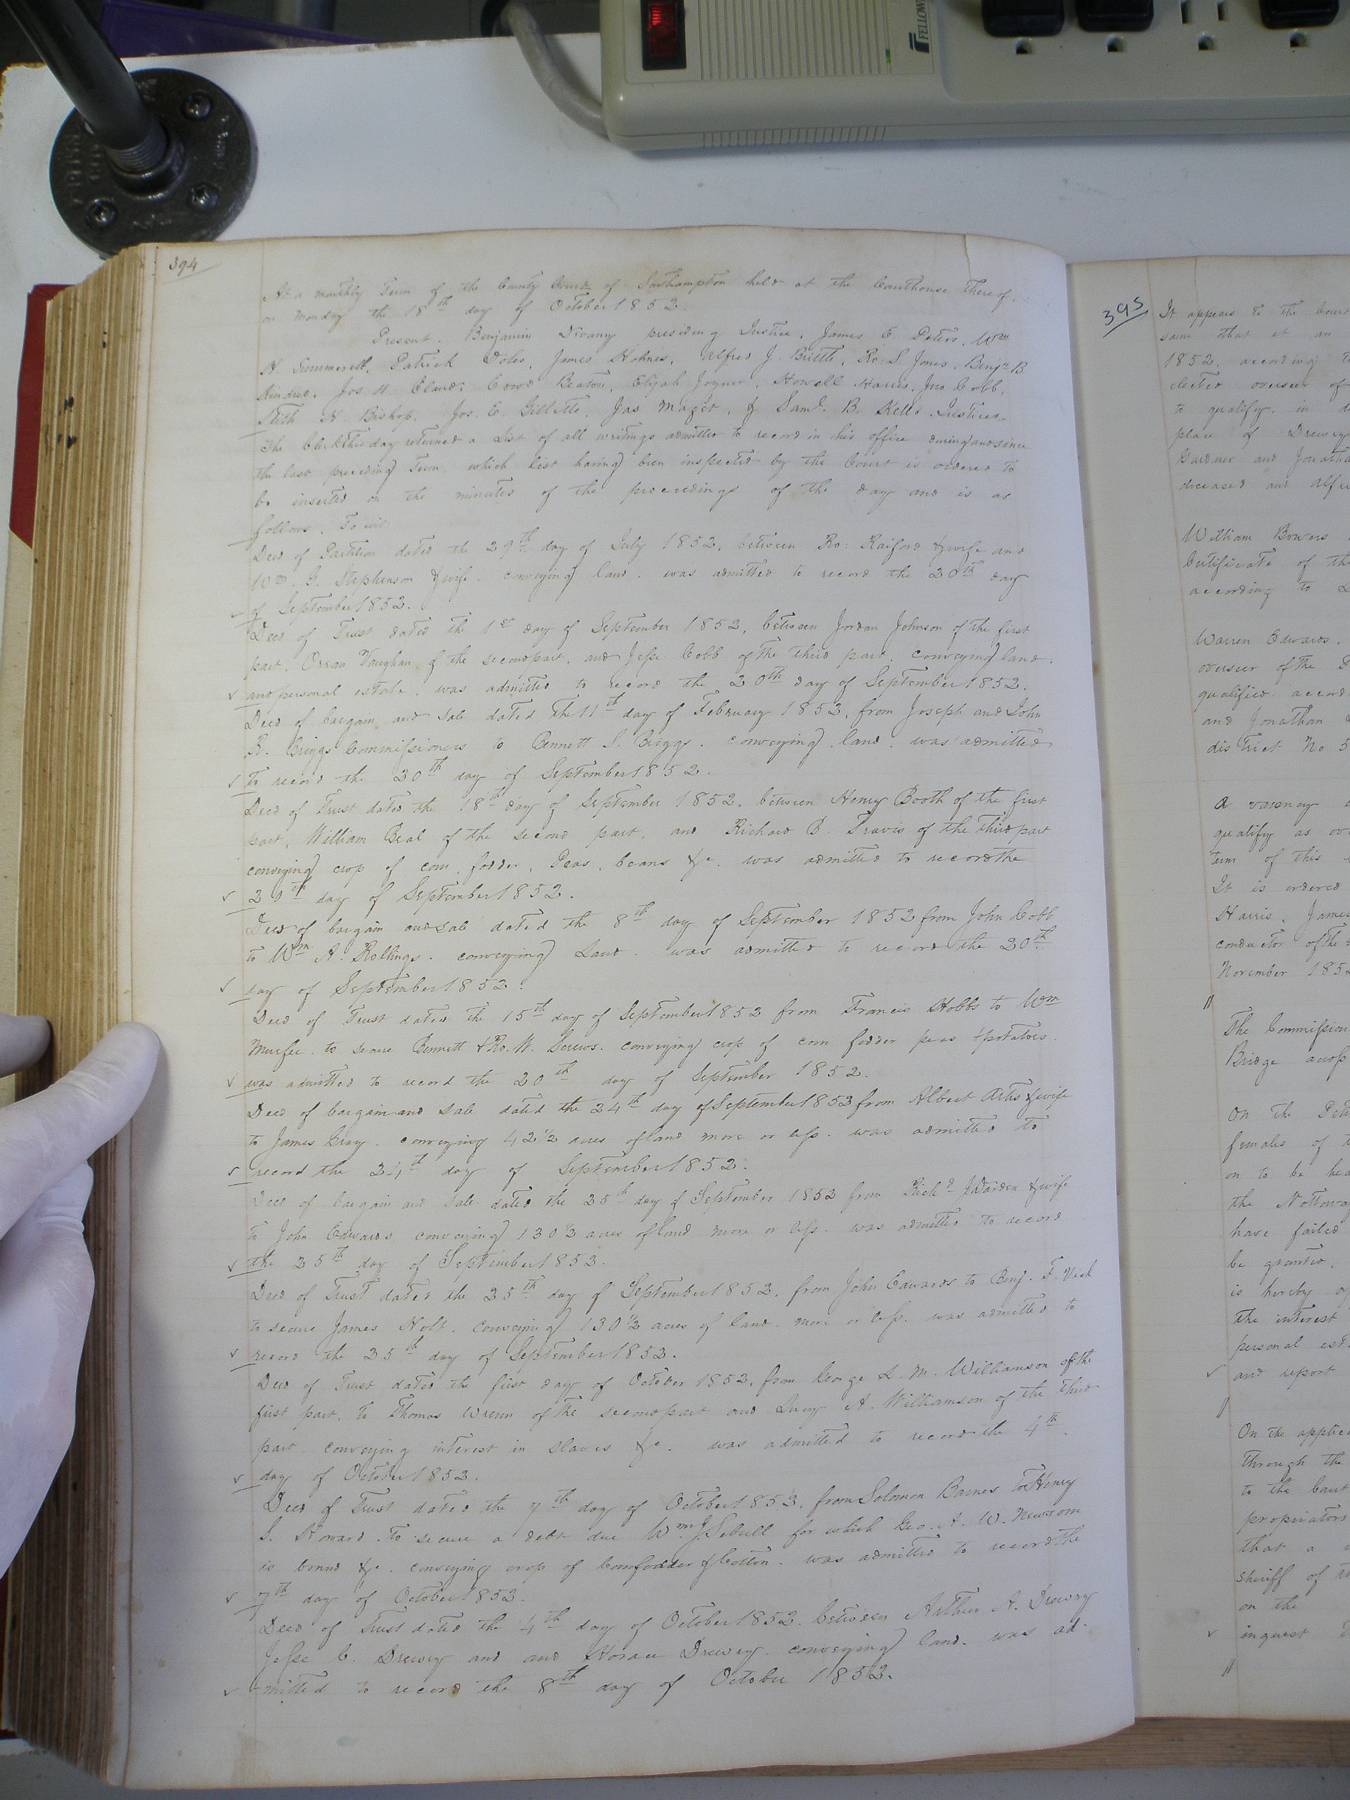 394
At a monthly Term of the County Court of Southampton held at the Courthouse thereof
on Monday the 18th day of October 1852.
Present. Benjamin Drewry presiding Justice, James E. Peters, Wm
H. Summerell, Patrick Doles, James Holmes, Alfred J. Brittle, Ro: S Jones, Benjn B
Kindred, Jos H. Claud, Edwd Beaton, Elijah Joyner, Howell Harris, Jno Cobb,
Nath H. Bishop, Jos. E. Gillette, Jas Maget, & Saml. B. Kello Justices
The Clerk this day returned a List of all writings admitted to record in his office during and since
the last preceding Term, which list having been inspected by the Court is ordered to
be inserted on the minutes of the proceedings of the day and is as
follows, To wit
Deed of Partition dated the 29th day of July 1852, between Ro: Raiford & wife and
Wm. G. Stephenson & wife. conveying land. was admitted to record the 20th day
of September 1852.
Deed of Trust dated the 1st day of September 1852, between Jordan Johnson of the first
part, Orran Vaughan of the second part, and Jesse Cobb of the third part, conveying land,
and personal estate. was admitted to record the 20th day of September 1852.
Deed of bargain and sale dated the 11th day of February 1852, from Joseph and John
R. Briggs Commissioners to Bennett S. Briggs. conveying land. was admitted
to record the 20th day of September 1852.
Deed of Trust dated the 18th day of September 1852, between Henry Booth of the first
part, William Beal of the second part, and Richard B. Travis of the third part
conveying crop of corn, fodder, Peas, beans &c. was admitted to record the
20th day of September 1852.
Deed of bargain and sale dated the 8th day of September 1852 from John Cobb
to Wm A. Rollings. conveying Land. was admitted to record the 20th
day of September 1852.
Deed of Trust dated the 15th day of September 1852 from Francis Hobbs to Wm
Murfee to secure Bennett & Ro. W. conveying crop of corn fodder peas & potatoes.
was admitted to record the 20th day of September 1852.
Deed of bargain and sale dated the 24th day of September 1852 from Albert Artis & wife
to James Gray. conveying 42 1/2 acres of land more or less. was admitted to
record the 24th day of September 1852.
Deed of bargain and sale dated the 25th day of September 1852 from Richd. J Warden & wife
to John Edwards conveying 130 1/2 acres of land more or less. was admitted to record
the 25th day of September 1852.
Deed of Trust dated the 25th day of September 1852, from John Edwards to Benj. F. Vick
to secure James Holt. conveying 130 1/2 acres of land more or less. was admitted to
record the 25th day of September 1852.
Deed of Trust dated the first day of October 1852, from George L. M. Williamson of the
first part, to Thomas Wrenn of the second part and Lucy A. Williamson of the third
part conveying interest in slaves &c. was admitted to record the 4th
day of October 1852.
Deed of Trust dated the 7th day of October 1852, from Solomon Barnes to Henry
S. Howard. to secure a debt due Wm J Sebrell for which Geo. A. W. Newsom
is bound &c. conveying crop of Corn fodder & Cotton. was admitted to record the
7th day of October 1852.
Deed of Trust dated the 4th day of October 1852. between Arthur A. Drewry
Jesse C. Drewry and and Horace Drewry conveying land. was ad-
mitted to record the 8th day of October 1852.
395
It appears to the Court
same that at an
1852, according
elected overseer of
to qualify, in
place of Drewry
Gardner and Jonathan
deceased and Alfre
William Bowers
Certificate of the
according to
Warren Edwards,
overseer of the
qualified accord
and Jonathan
district No 5
A vacancy
qualify as ov
term of this
It is ordered
Harris, James
conductor of the
November 1852
The Commission
Bridge across
On the Peti
females of
on to be he
the Nottoway
have failed
be granted,
is hereby o
the interest
personal est
and report
On the applic
through the
to the Court
proprietors
that a
sheriff of
on the
inquest
FELLOW